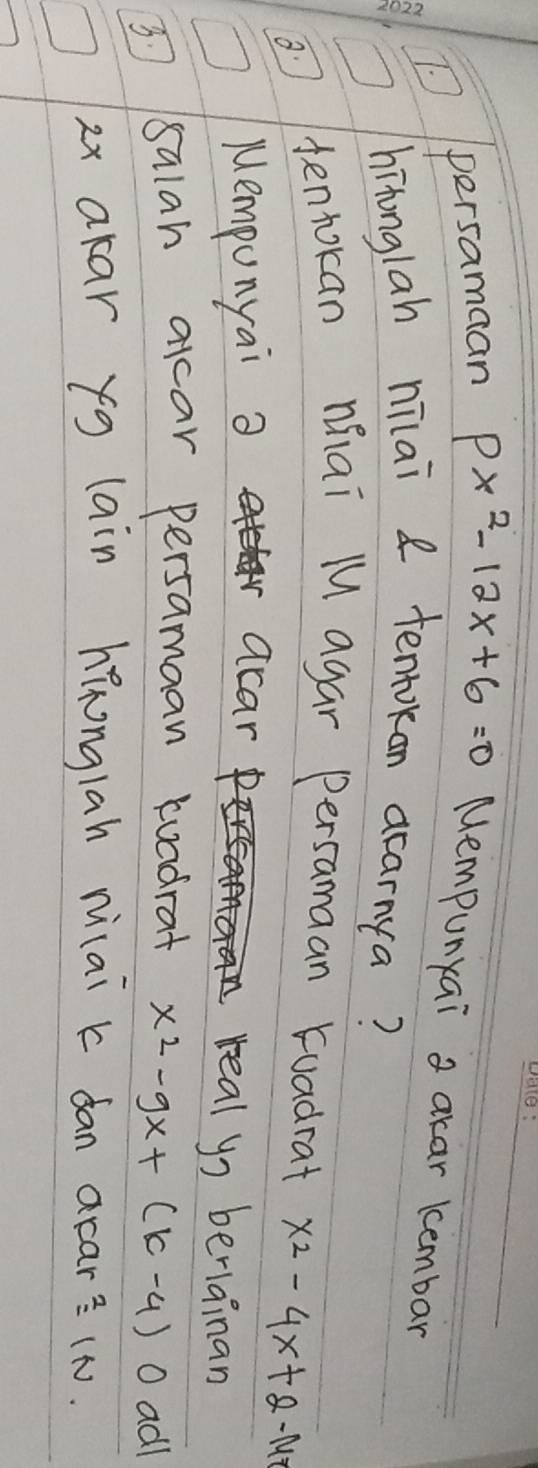 2022
Date:
1. Persamaan Px²-12x+6=0 Mempunyai 2 akar kembar
hitunglah nilai & tentukan akarnya?
2. tentukan nilai M agar Persamaan kuadrat x²-4x+2-M=
Mempunyai 2 akar real yg berlainan
3. Salah akar Persamaan kuadrat x²-9x+(k-4) 0 adl
2x akar yg lain hitunglah nilai k dan akar² = IN.